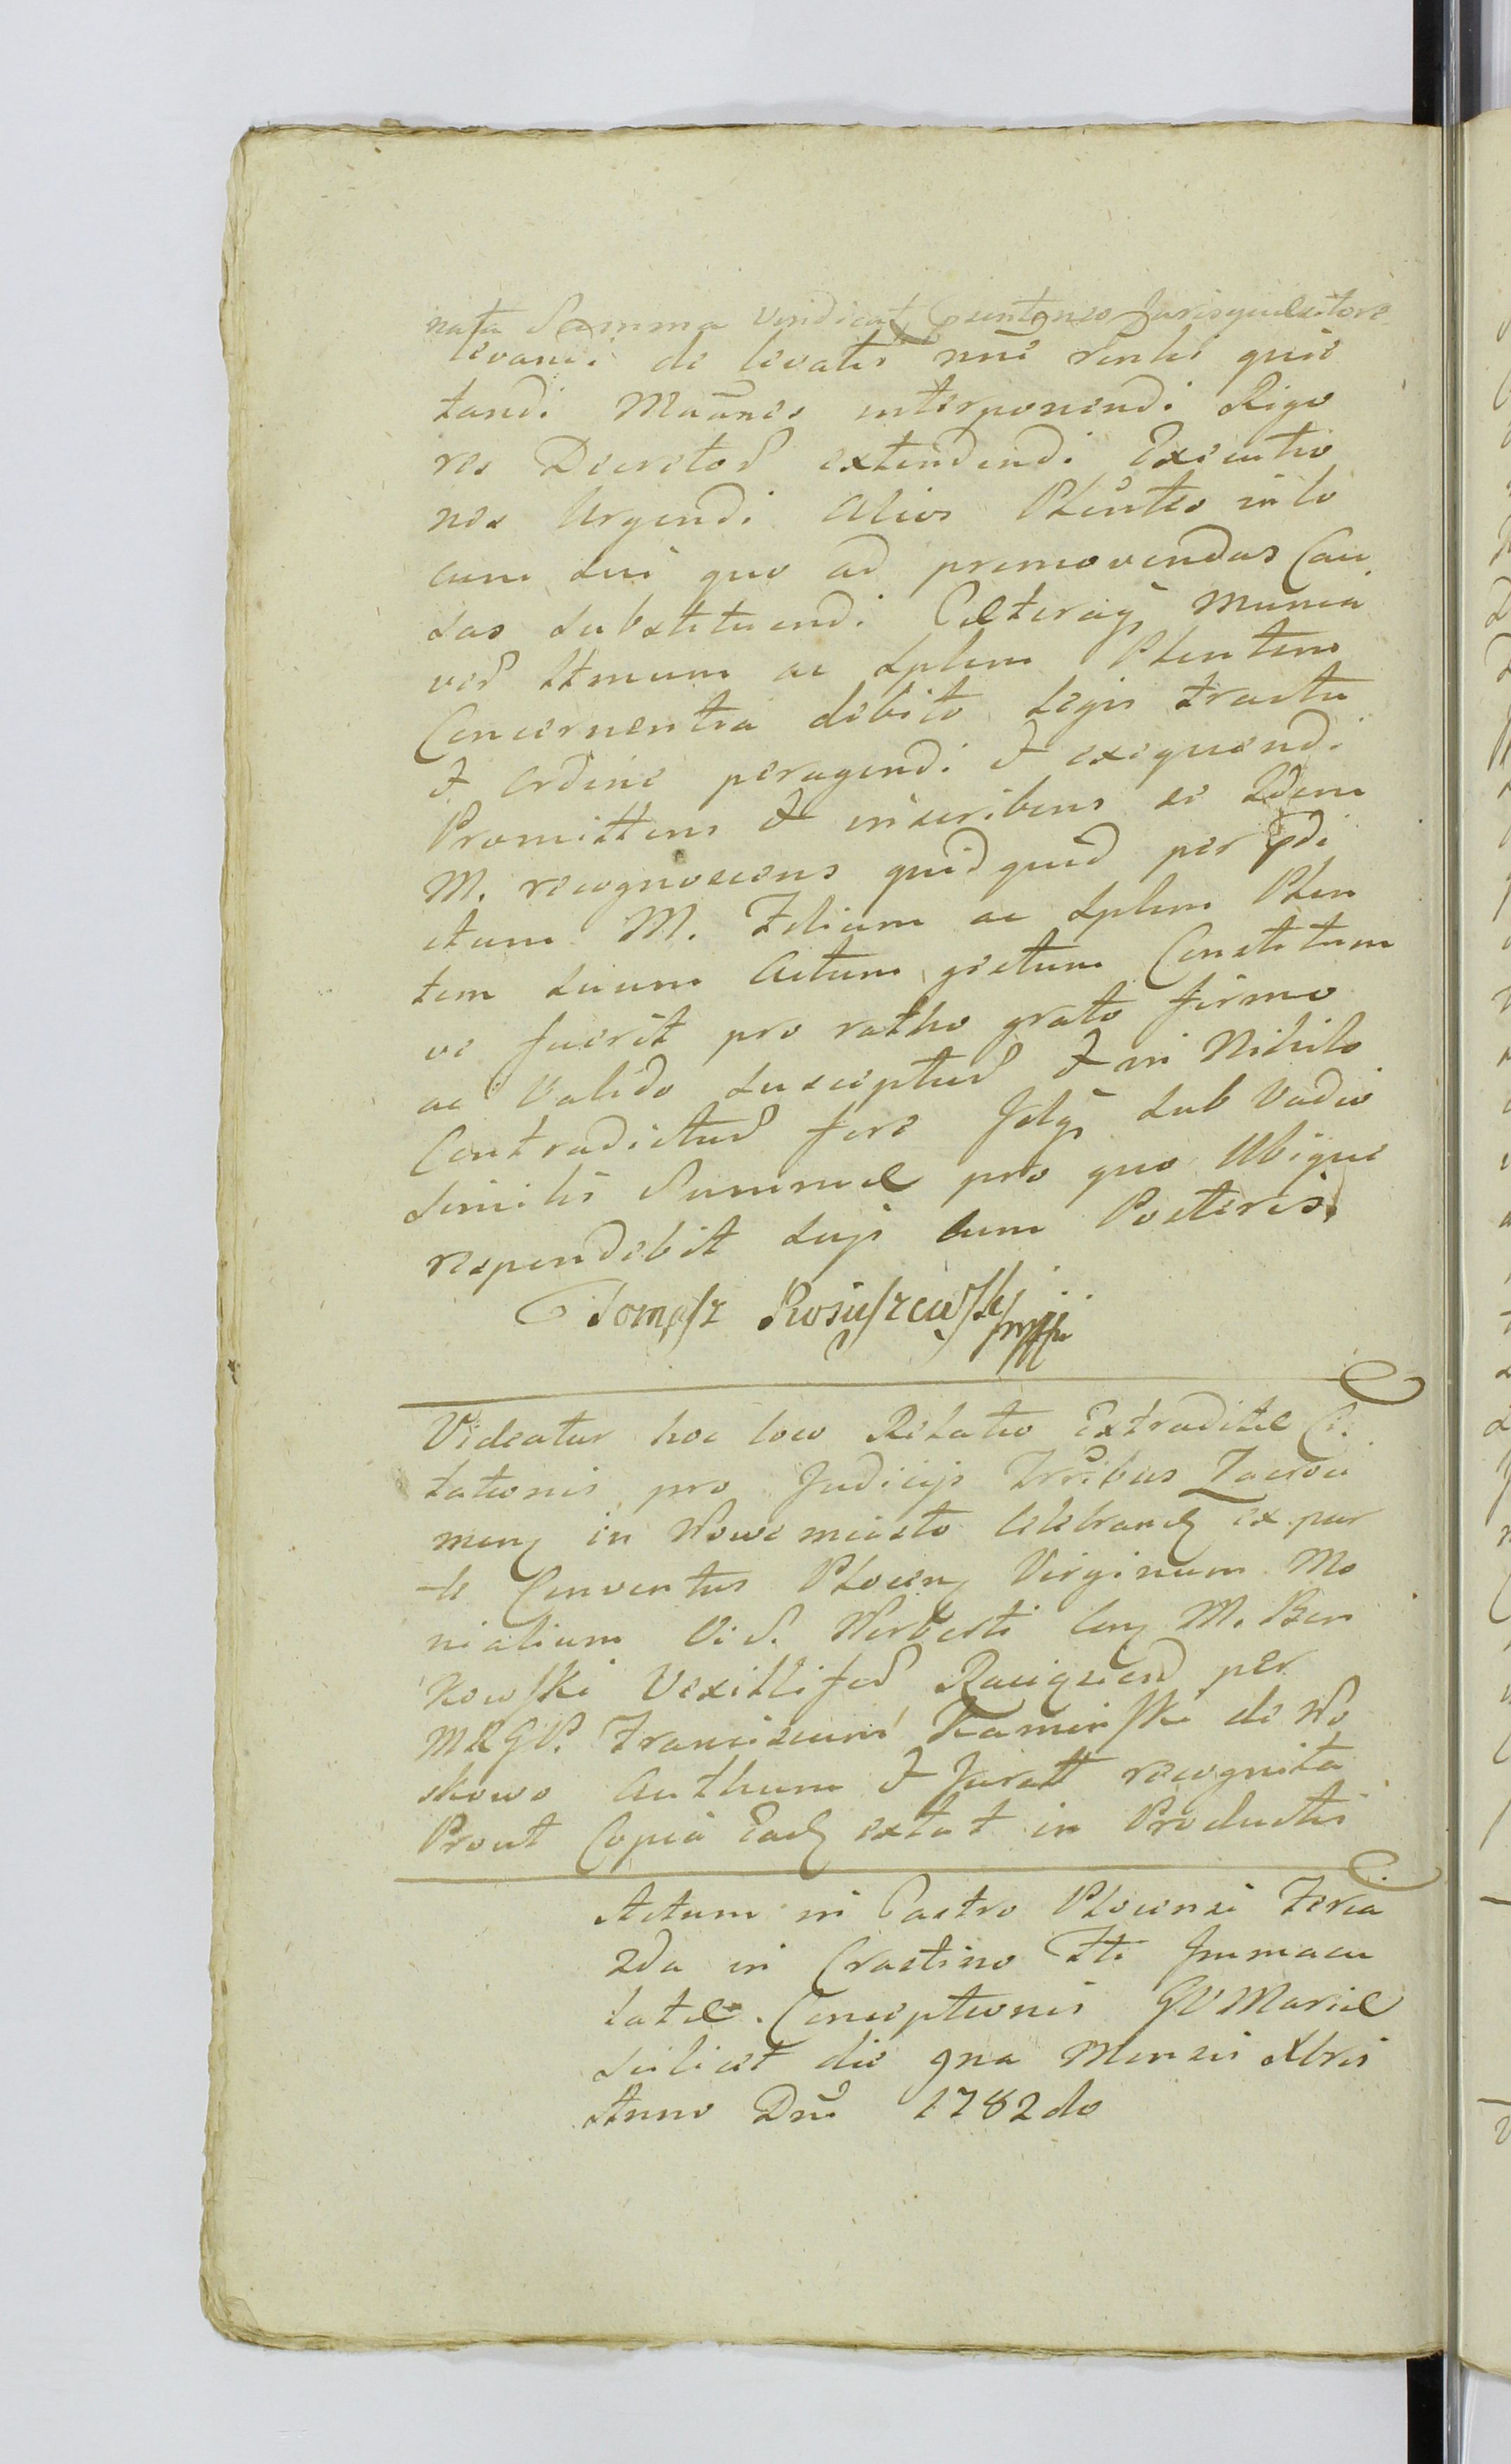 nata Summa vindicat Jurisquaesitore
levandi de levatis quie
tandi interponendi Rigo
res Decretor extendendi Executio
nes Urgendi alios Plentes in lo
cum sui quo ad premovendas Cau
sas substituendi Caeteraq munia
ver ac splem Plentem
Concernentia debito legis tractu
et ordine peragendi et exequendi
Promittens et inscribens se Idem
M. recognoscens quidquid per pdi
ctum M. Filium ac splem Plen
tem suum actum gestum Constitutum
ve fuerit pro ratho grato firmo
ac Valido suscepturus et in Nihilo
Contradicturus fore sub Vadio
similis Summae pro quo Ubique
respondebit sup cum Posteris
Tomasz mpp
Videatur hoc loco Relatio Extraditae Ci
tationis pro Judicijs Trribus Zacroci
men in Nowe miasto celebrand ex par
te Conventus Plocen Virginum Mo
nialium Ord. Norberti con M. Bon
kowski Vexillifer Raciązien per
Franciscum Kaminski de Wo
skowo Authum et Jurat recognita
Prout Copia Ead extat in Productis
Actum in Castro Plocensi Feria
2da in Crastino Fti Immacu
latae Conceptionis BV Mariae
scilicet die 9na Mensis Xbris
Anno Dni 1782do